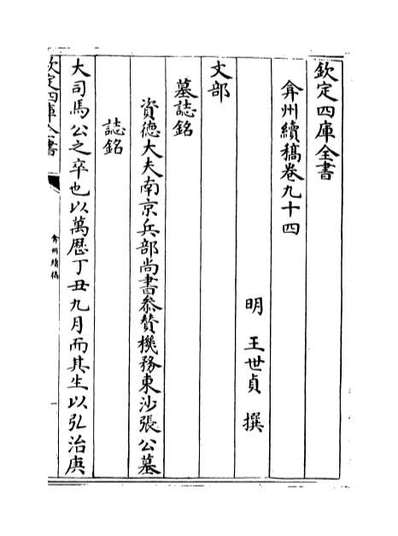 欽定四庫全書
弇州續稿卷九十四
明 王世貞 撰
文部
墓誌銘
資德大夫南京兵部尚書參贊機務東沙張公墓
誌銘
大司馬公之卒也以萬厯丁丑九月而其生以弘治庚
欽定四庫全書
弇州續稿
一